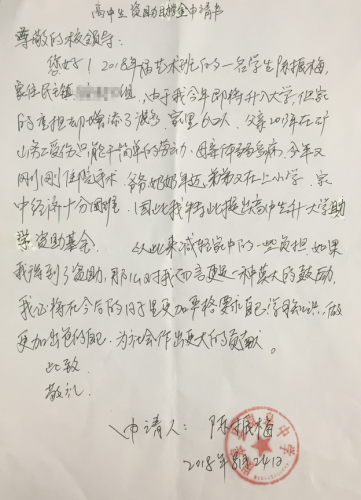 高中生资助助学金申请书
尊敬的校领导：
您好！2018年届艺术班的一名学生陈振梅，
家住民主镇 组，由于我今年即将升入大学，但家
的重担却增添了很多，家里6口人，父亲2017年在矿
山劳受伤只能干简单的劳动，母亲体弱多病，今年又
刚刚住院手术，爷爷奶奶年迈，弟弟又在上小学，家
中经济十分困难，因此我特此提出高中生升大学助
学资助基金。从此来减轻家中的一些负担，如果
我得到了资助，那么对我而言更是一种莫大的鼓励，
我必将在今后的日子里更加严格要求自己，学习知识，做
更加出色的自己，为社会作出更大的贡献。
此致
敬礼
申请人：陈振梅
2018年8月24日